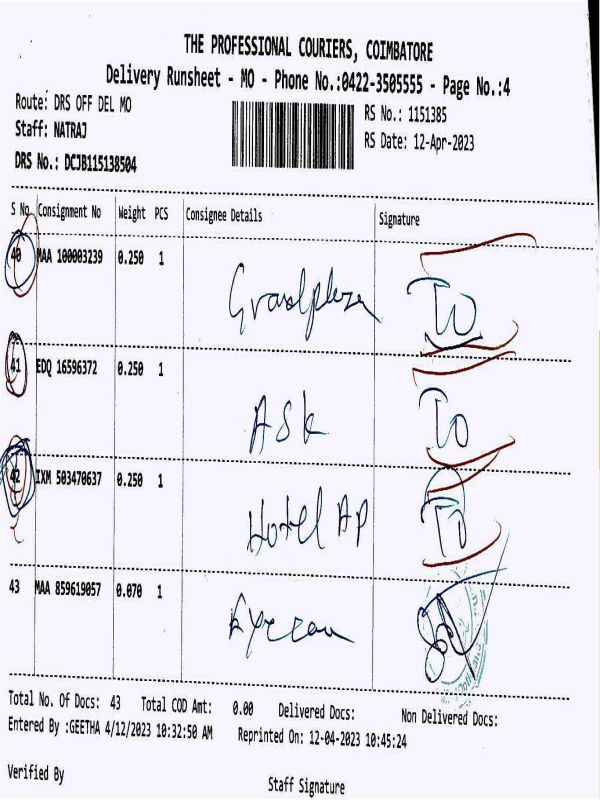 THE PROFESSIONAL COURIERS, COIMBATORE
Delivery Runsheet - MO - Phone No.:0422-3505555 - Page No.:4
Route: DRS OFF DEL MO
RS No.: 1151385
Staff: NATRAJ
RS Date: 12-Apr-2023
DRS No.: DCJB115138504
S No Consignment No Weight PCS Consignee Details Signature
40 MAA 100003239 0.250 1
41 EDQ 16596372 0.250 1 ASK
42 IXM 503470637 0.250 1 Hotel AP
43 MAA 859619057 0.070 1
Total No. Of Docs: 43 Total COD Amt: 0.00 Delivered Docs: Non Delivered Docs:
Entered By :GEETHA 4/12/2023 10:32:50 AM Reprinted On: 12-04-2023 10:45:24
Verified By Staff Signature